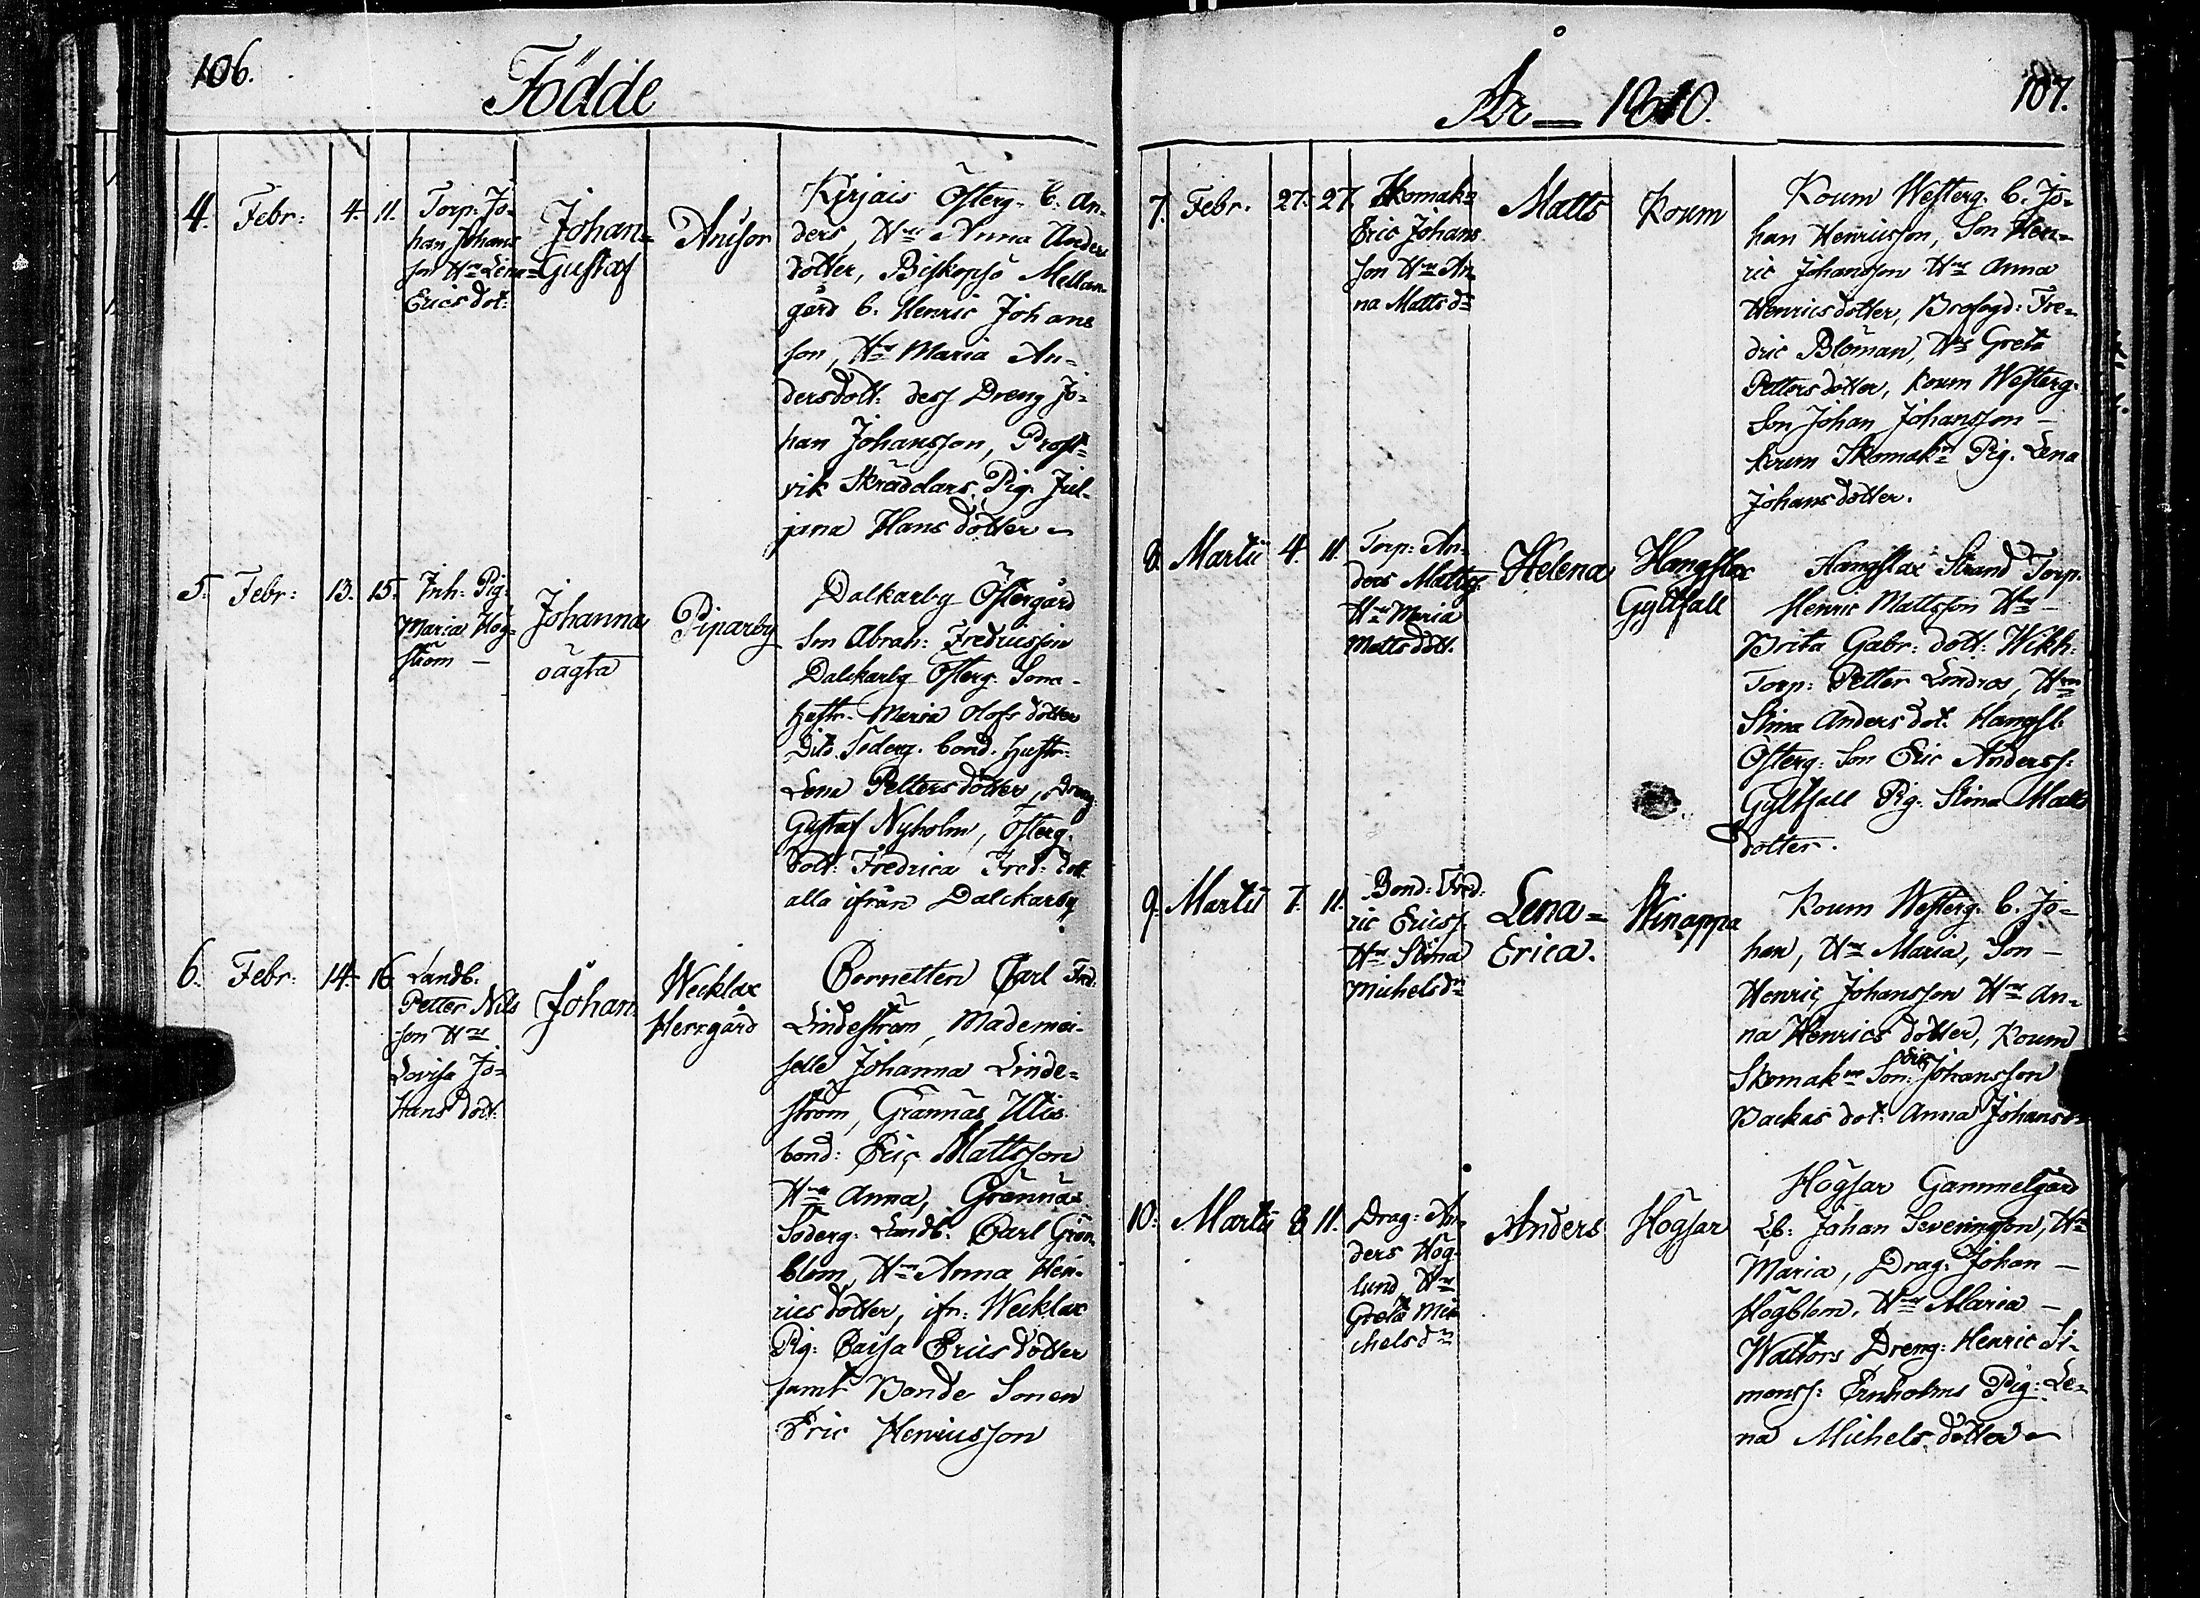 106.
Födde
4. Febr: 4. 11. Torp: Jo-
han Johans
son Hu Lena
Ericsdot:
Johan
Gustaf
Anisor
Kirjais Österg. b. An-
ders, Hu Anna Anders
dotter, Biskopsö Mellan-
gård b. Henric Johans
son, Hu Maria An-
dersdott: dess Dreng Jo-
han Johansson, Prost-
vik Skräddars Pig. Jul-
jana Hansdotter
5. Febr: 13. 15. Inh: Pig:
Maria Hög-
ström
Johanna
oägta
Piparby
Dalkarby Östergård
Son Abrah: Fredricsson
Dalckarby Österg: Sona-
hustr. Maria Olofsdotter
Dito Söderg. bond. hustr.
Lena Pettersdotter, Dreng
Gustaf Nyholm, Österg.
dott: Fredrica Fred: dott
alla ifrån Dalckarby
6. Febr: 14. 16. Landb.
Petter Nils
son Hu
Lovisa Jo-
hansdot:
Johan
Wecklax
Herrgård
Cornetten Carl Fred:
Lindeström, Mademoi-
selle Johanna Linde-
ström, Grännäs Utis
bond: Eric Mattsson
Hu Anna, Grännäs
Söderg: Landb: Carl Grön-
blom, Hu Anna Hen-
ricsdotter, ifr: Wecklax
Pig: Caisa Ericsdotter
samt Bonde Sonen
Eric Henricsson
År 1810.
107.
7. Febr. 27. 27. Skomak:
Eric Johans
son Hu An-
na Mattsd:
Matts
Koum
Koum Westerg. b. Jo-
han Henricsson, Son Hen-
ric Johansson Hu Anna
Henricsdotter, Brofogd: Fre-
dric Bloman, Hu Greta
Pettersdotter, Koum Westerg.
Son Johan Johansson
Koum Skomak: Pig. Lena
Johansdotter.
8. Martii 4. 11. Torp: An-
ders Mattss.
Hu Maria
Mattsdott.
Helena
Hangslax
Gyltfall
Hangslax Strand Torp.
Henric Mattsson Hu
Brita Gabr: dott: Wikh:
Torp: Petter Lindros, Hu
Stina Andersdot. Hangsl.
Österg: Son Eric Anderss:
Gyltfall Pig. Stina Matts
dotter.
9. Martii 7. 11. Bond: Fred:
ric Ericss.
Hu Stina
Michelsd:
Lena
Erica.
Winappa
Koum Westerg. b. Jo-
han, Hu Maria, Son
Henric Johansson Hu An-
na Henricsdotter, Koum
Skomak: Son: Eric Johansson
Backas dot: Anna Johansd:
10. Martii 8 11. Drag: An-
ders Hög-
lund Hu
Greta Mi-
chelsd:
Anders
Högsar
Högsar Gammelgård
Lb: Johan Severinsson, Hu
Maria, Drag: Johan
Högblom, Hu Maria
Waltors Dreng: Henric Si-
monss: Ernholms Pig: Le-
na Michelsdotter